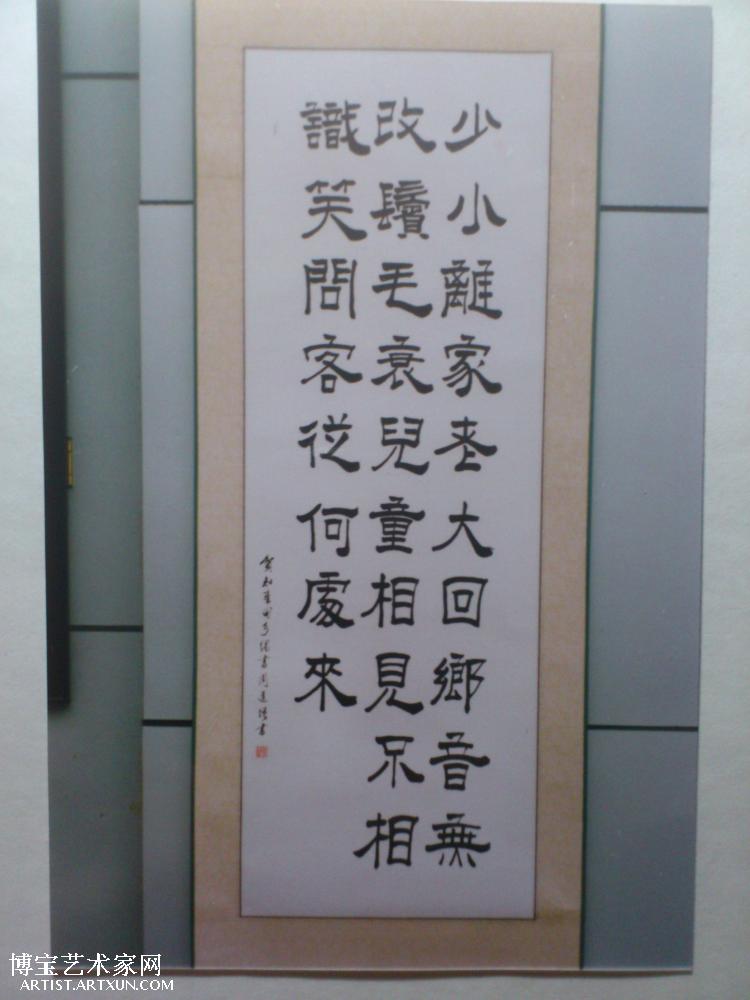 少小離家老大回鄉音無
改鬢毛衰兒童相見不相
識笑問客從何處來
賀知章回鄉偶書周書
博宝艺术家网
ARTIST.ARTXUN.COM